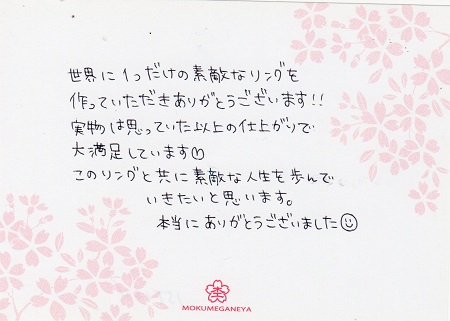 世界に1つだけの素敵なリングを
作っていただきありがとうございます!!
実物は思っていた以上の仕上がりで
大満足しています♡
このリングと共に素敵な人生を歩んで
いきたいと思います。
本当にありがとうございました☺
MOKUMEGANEYA